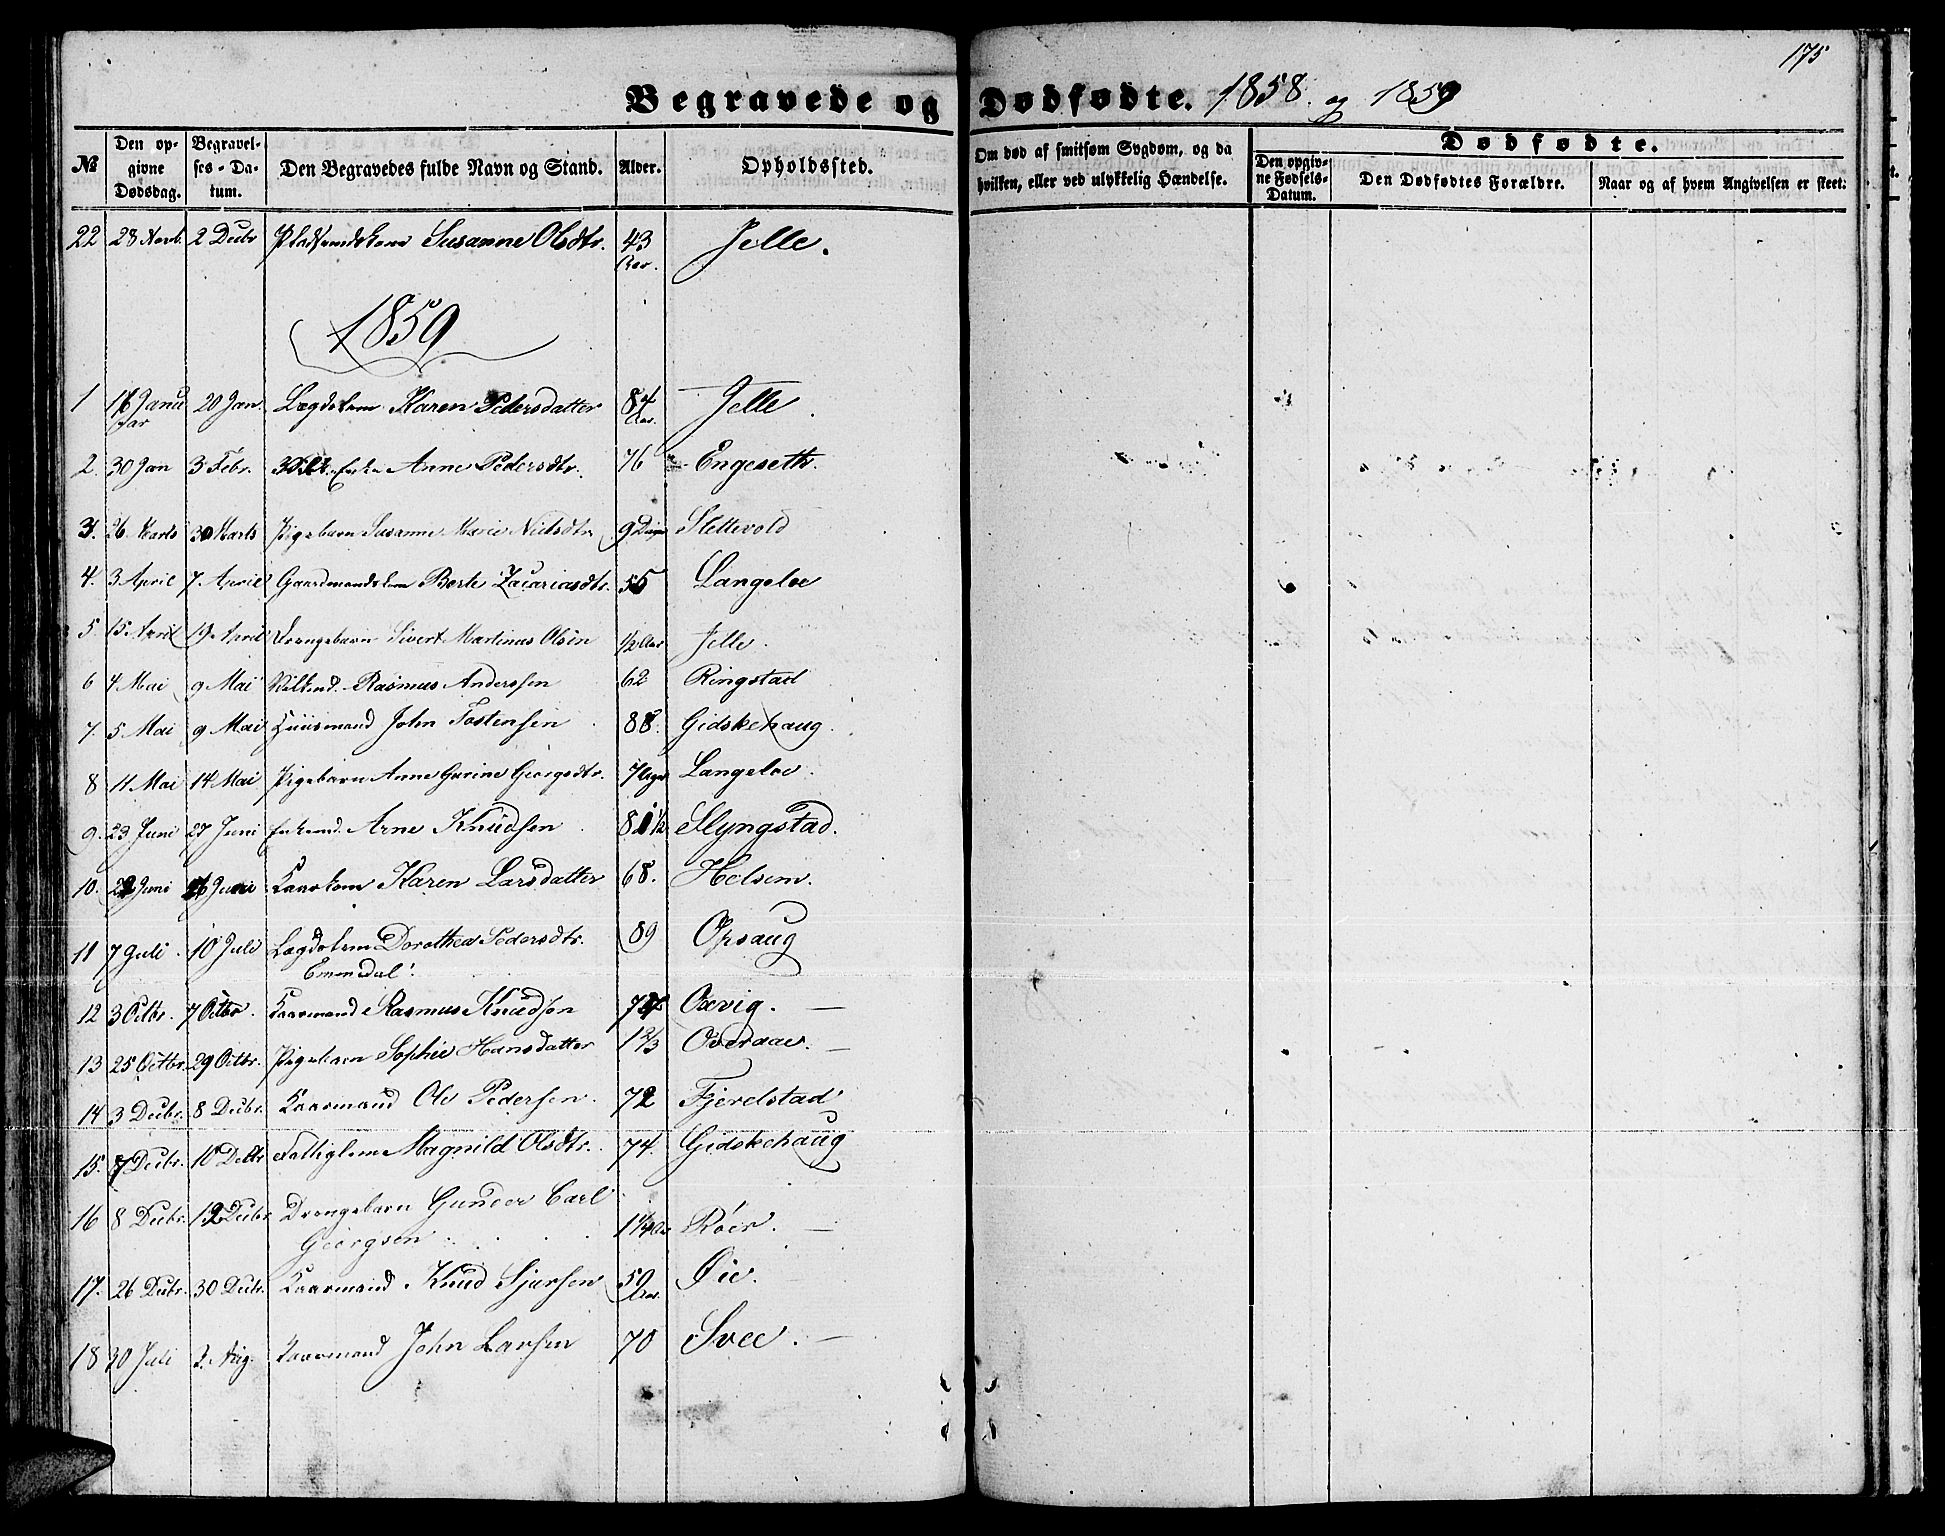 175
Begravede og Dødfødte. 1858. og 1859
№ Den opgivne Dødsdag. Begravelses-Datum. Den Begravedes fulde Navn og Stand. Alder. Opholdssted. Om død af smitsom Sygdom, og da hvilken, eller ved ulykkelig Hændelse. Dødfødte. Den opgivne Fødsels-Datum. Den Dødfødtes Forældre. Naar og af hvem Angivelsen er skeet.
22 28 Novb. 2 Decbr Susanne Olsdtr. 43 Aar. Jelle.
1859
1 Januar 20 Jan. Lægdslem Karen Pedersdatter 84 Aar. Jelle.
2. 30 Jan 3 Febr. Enke Anne Pedersdtr. 76 Engeseth.
3. 26 Marts 30 Marts Pigebarn Susanne Marie Nielsdtr. 9 Dage Slettevold
4. 3 April 7. April Gaardmandskone Berte Zacariasdtr. 55 Langeloe
5. 15 April 19. April Drengebarn Sivert Martinus Olsen 1/2 Aar Jelle.
6 4 Mai 9 Mai Rasmus Anderssen 62 Ringstad
7. 5 Mai 9 Mai Huusmand John Tostensen 88. Gidskehaug.
8 11 Mai 14 Mai Pigebarn Anne Gurine Georgsdtr. 7 Uger Langeloe.
9. 23 Juni 27 Juni Enkemd. Arne Knudsen 81 1/2 Slyngstad.
10. 22 Juni 26 Juni Kaarkone Karen Larsdatter 68. Helsem.
11 7 Juli. 10 Juli Lægdslem Dorothea Pedersdtr. 89 Opsaug
Emmedal.
12 3 Octbr. 7 Octbr. Kaarmand Rasmus Knudsen Oxvig. —
13 25 Octbr. 29 Octbr. Pigebarn Sophie Hansdatter 1 2/3 Overaae. —
14 3 Decbr. 8 Decbr. Kaarmand Ole Pedersen. 72 Fjerelstad
15. 7 Decbr. 10 Decbr Fattiglem Magnild Olsdtr. 74. Gidskehaug
16 8 Decbr. 12 Decbr Drengebarn Gunder Carl
Georgsen 1 1/4 Aar Röer. —
17. 26 Decbr. 30 Decbr. Kaarmand Knud Sjursen 59 Aar. Øie.
18 30 Juli 2. Aug. Kaarmand John Larsen 70 Svee. —